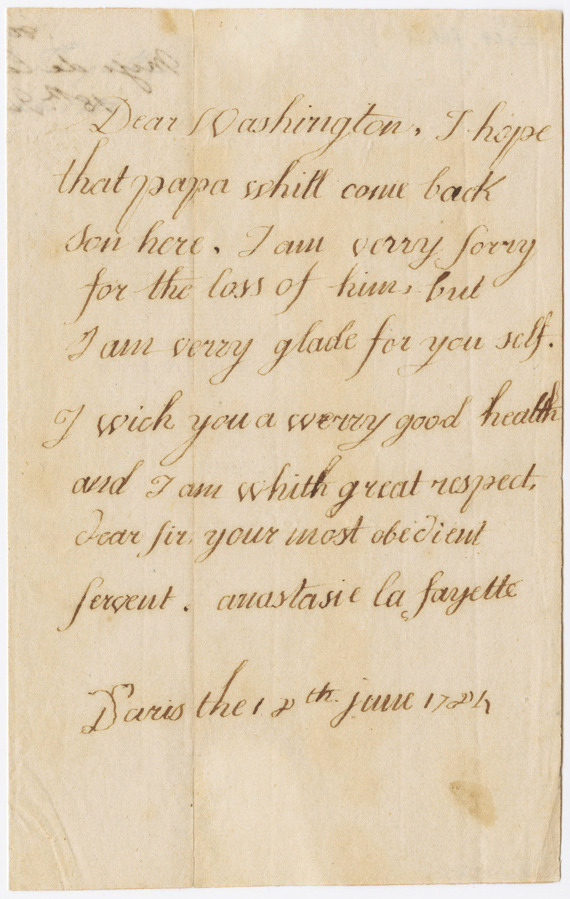 Dear Washington, I hope
that papa whill come back
son here. I am verry sorry
for the loss of him, but
I am verry glade for you self.
I wich you a werry good health
and I am whith great respect,
dear sir, your most obedient
servent. anastasie la fayette
Paris the 18th june 1784